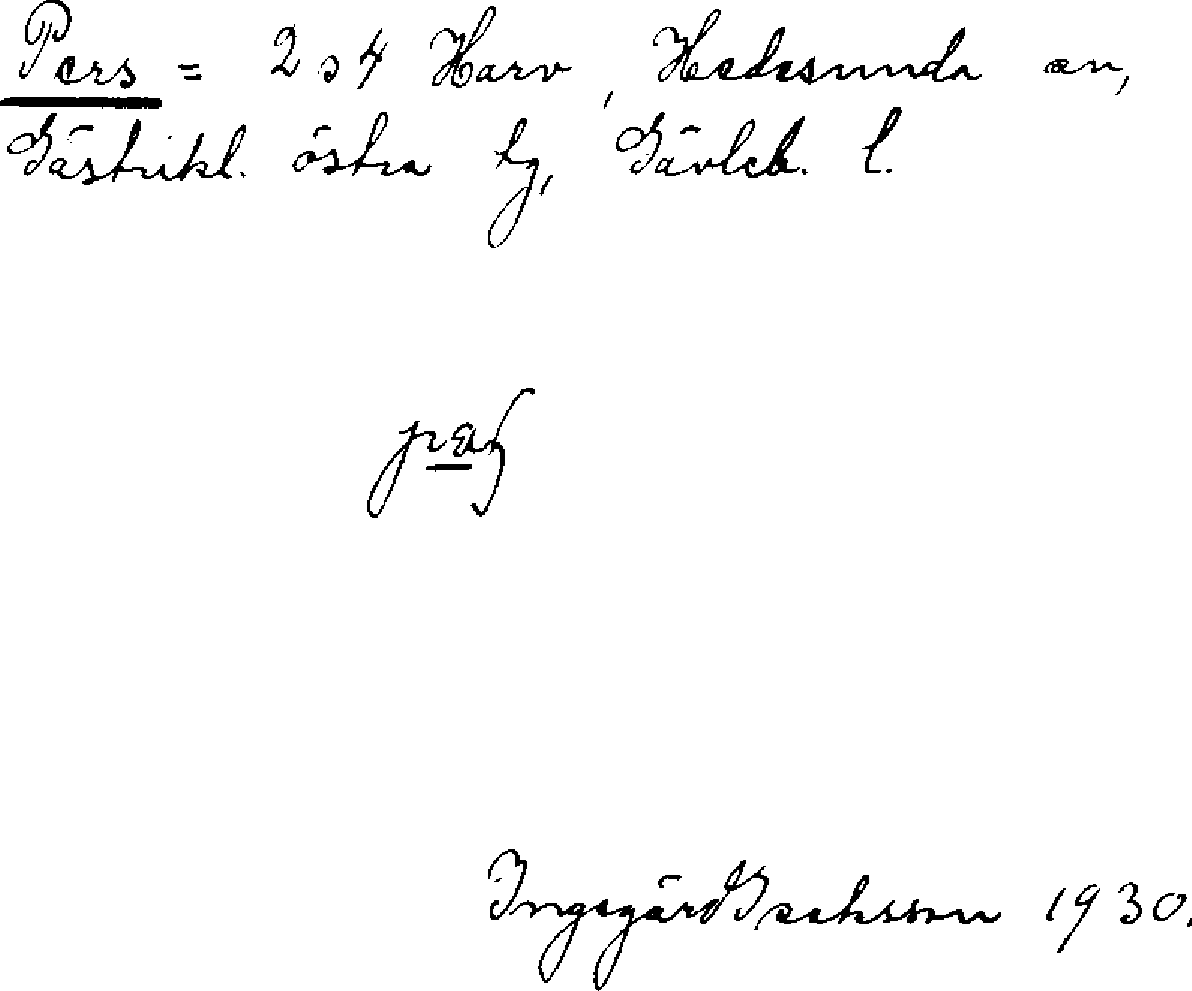 Pers = 2 o 4 Harv, Hedesunda sn,
Gästrikl. östra tg, Gävleb. l.
Ingegärd Isaksson 1930.